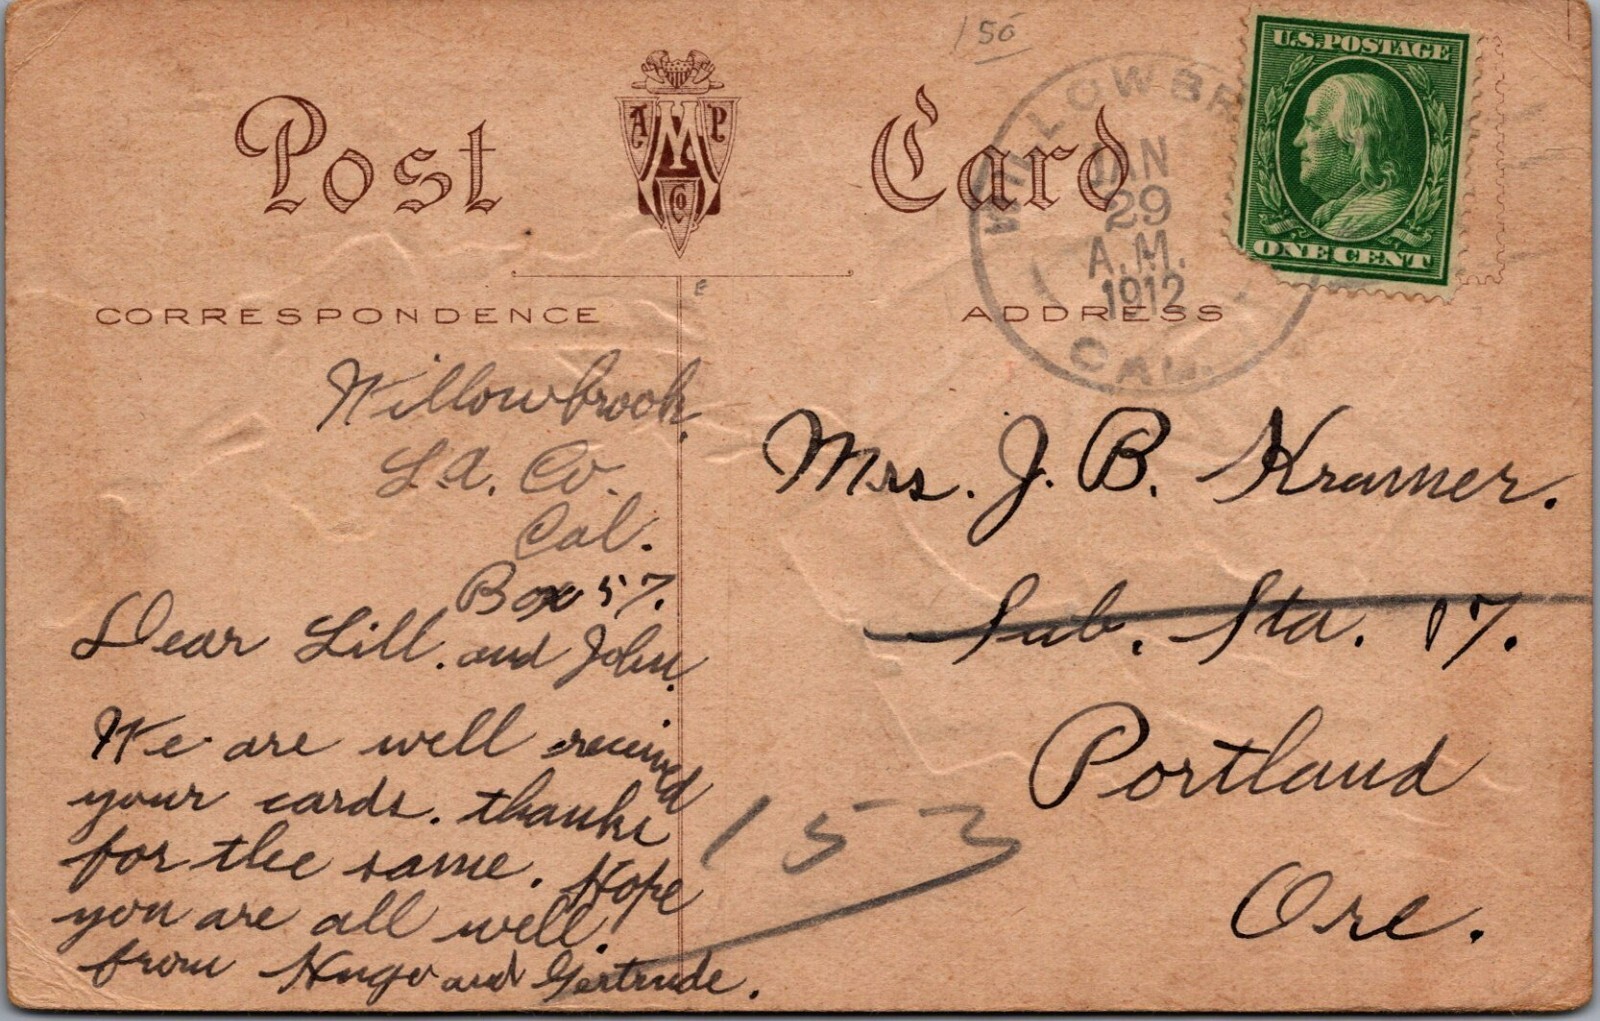 150
Post Card
A M P
Co
WILLOWBR
JAN
29
A.M.
1912
CAL.
U.S. POSTAGE
ONE CENT
CORRESPONDENCE
ADDRESS
E
Willowbrook,
L.A. Co.
Cal.
Box 57.
Dear Lill. and John.
We are well received
your cards. thanks
for the same. Hope
you are all well.
from Hugo and Gertrude.
Mrs. J. B. Kramer.
Sub. Sta. 17.
Portland
Ore.
153